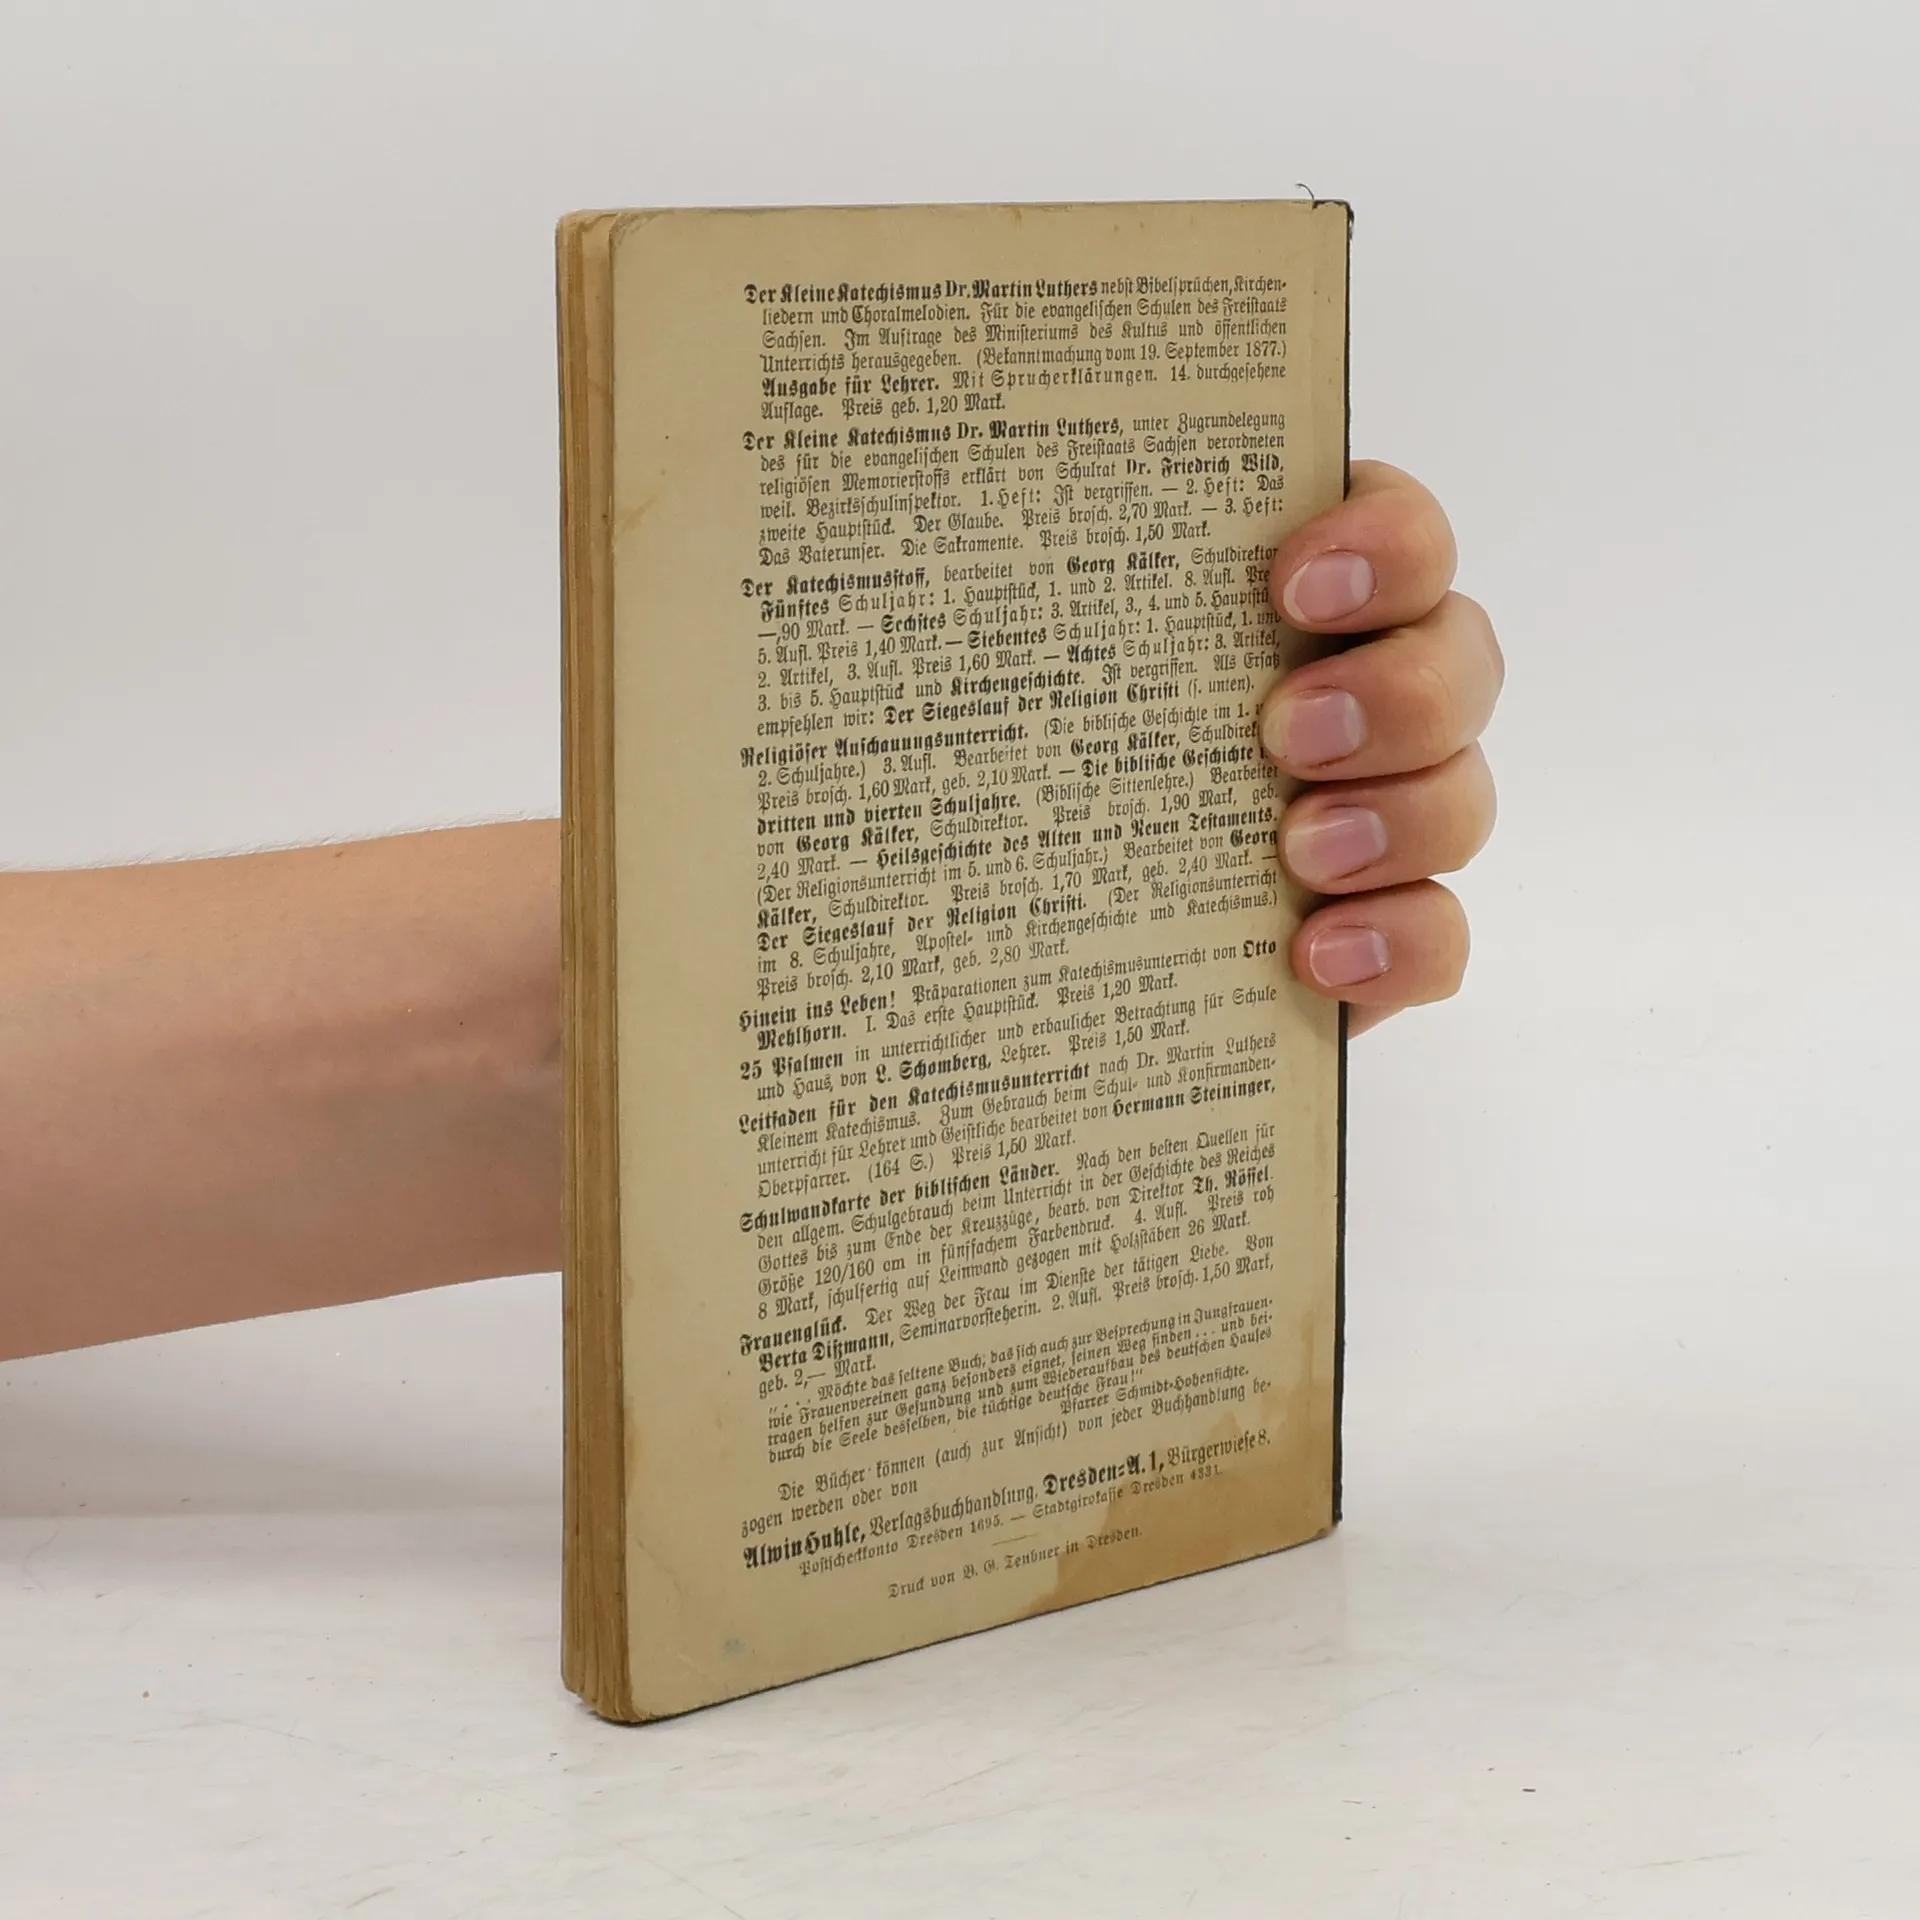 Der Kleine Katechismus Dr. Martin Luthers nebst Bibelsprüchen, Kirchen-
liedern und Choralmelodien. Für die evangelischen Schulen des Freistaats
Sachsen. Im Auftrage des Ministeriums des Kultus und öffentlichen
Unterrichts herausgegeben. (Bekanntmachung vom 19. September 1877.)
Ausgabe für Lehrer. Mit Spruch­erklärungen. 14. durchgesehene
Auflage. Preis geb. 1,20 Mark.
Der Kleine Katechismus Dr. Martin Luthers, unter Zugrundelegung
des für die evangelischen Schulen des Freistaats Sachsen verordneten
religiösen Memorierstoffs erklärt von Schulrat Dr. Friedrich Wild,
weil. Bezirksschulinspektor. 1. Heft: Ist vergriffen. — 2. Heft: Das
zweite Hauptstück. Der Glaube. Preis brosch. 2,70 Mark. — 3. Heft:
Das Vaterunser. Die Sakramente. Preis brosch. 1,50 Mark.
Der Katechismusstoff, bearbeitet von Georg Kälker, Schuldirektor
Fünftes Schuljahr: 1. Hauptstück, 1. und 2. Artikel. 8. Aufl. Pre
—,90 Mark. — Sechstes Schuljahr: 3. Artikel, 3., 4. und 5. Hauptstü
5. Aufl. Preis 1,40 Mark. — Siebentes Schuljahr: 1. Hauptstück, 1. und
2. Artikel, 3. Aufl. Preis 1,60 Mark. — Achtes Schuljahr: 3. Artikel,
3. bis 5. Hauptstück und Kirchengeschichte. Ist vergriffen. Als Ersatz
empfehlen wir: Der Siegeslauf der Religion Christi (s. unten).
Religiöser Anschauungsunterricht. (Die biblische Geschichte im 1.
2. Schuljahre.) 3. Aufl. Bearbeitet von Georg Kälker, Schuldirek
Preis brosch. 1,60 Mark, geb. 2,10 Mark. — Die biblische Geschichte
dritten und vierten Schuljahre. (Biblische Sittenlehre.) Bearbeitet
von Georg Kälker, Schuldirektor. Preis brosch. 1,90 Mark, geb.
2,40 Mark. — Heilsgeschichte des Alten und Neuen Testaments.
(Der Religionsunterricht im 5. und 6. Schuljahr.) Bearbeitet von Georg
Kälker, Schuldirektor. Preis brosch. 1,70 Mark, geb. 2,40 Mark. —
Der Siegeslauf der Religion Christi. (Der Religionsunterricht
im 8. Schuljahre, Apostel- und Kirchengeschichte und Katechismus.)
Preis brosch. 2,10 Mark, geb. 2,80 Mark.
Hinein ins Leben! Präparationen zum Katechismusunterricht von Otto
Mehlhorn. I. Das erste Hauptstück. Preis 1,20 Mark.
25 Psalmen in unterrichtlicher und erbaulicher Betrachtung für Schule
und Haus, von L. Schomberg, Lehrer. Preis 1,50 Mark.
Leitfaden für den Katechismusunterricht nach Dr. Martin Luthers
Kleinem Katechismus. Zum Gebrauch beim Schul- und Konfirmanden-
unterricht für Lehrer und Geistliche bearbeitet von Hermann Steininger,
Oberpfarrer. (164 S.) Preis 1,50 Mark.
Schulwandkarte der biblischen Länder. Nach den besten Quellen für
den allgem. Schulgebrauch beim Unterricht in der Geschichte des Reiches
Gottes bis zum Ende der Kreuzzüge, bearb. von Direktor Th. Rössel.
Größe 120/160 cm in fünffachem Farbendruck. 4. Aufl. Preis roh
8 Mark, schulfertig auf Leinwand gezogen mit Holzstäben 26 Mark.
Frauenglück. Der Weg der Frau im Dienste der tätigen Liebe. Von
Berta Dißmann, Seminarvorsteherin. 2. Aufl. Preis brosch. 1,50 Mark,
geb. 2,— Mark.
„. . . . Möchte das seltene Buch, das sich auch zur Besprechung in Jungfrauen-
wie Frauenvereinen ganz besonders eignet, seinen Weg finden . . . und bei-
tragen helfen zur Gesundung und zum Wiederaufbau des deutschen Hauses
durch die Seele desselben, die tüchtige deutsche Frau!"
Pfarrer Schmidt-Hohenfichte.
Die Bücher können (auch zur Ansicht) von jeder Buchhandlung be-
zogen werden oder von
Alwin Huhle, Verlagsbuchhandlung, Dresden-A. 1, Bürgerwiese 8.
Postscheckkonto Dresden 1695. — Stadtgirokasse Dresden 4331.
Druck von B. G. Teubner in Dresden.